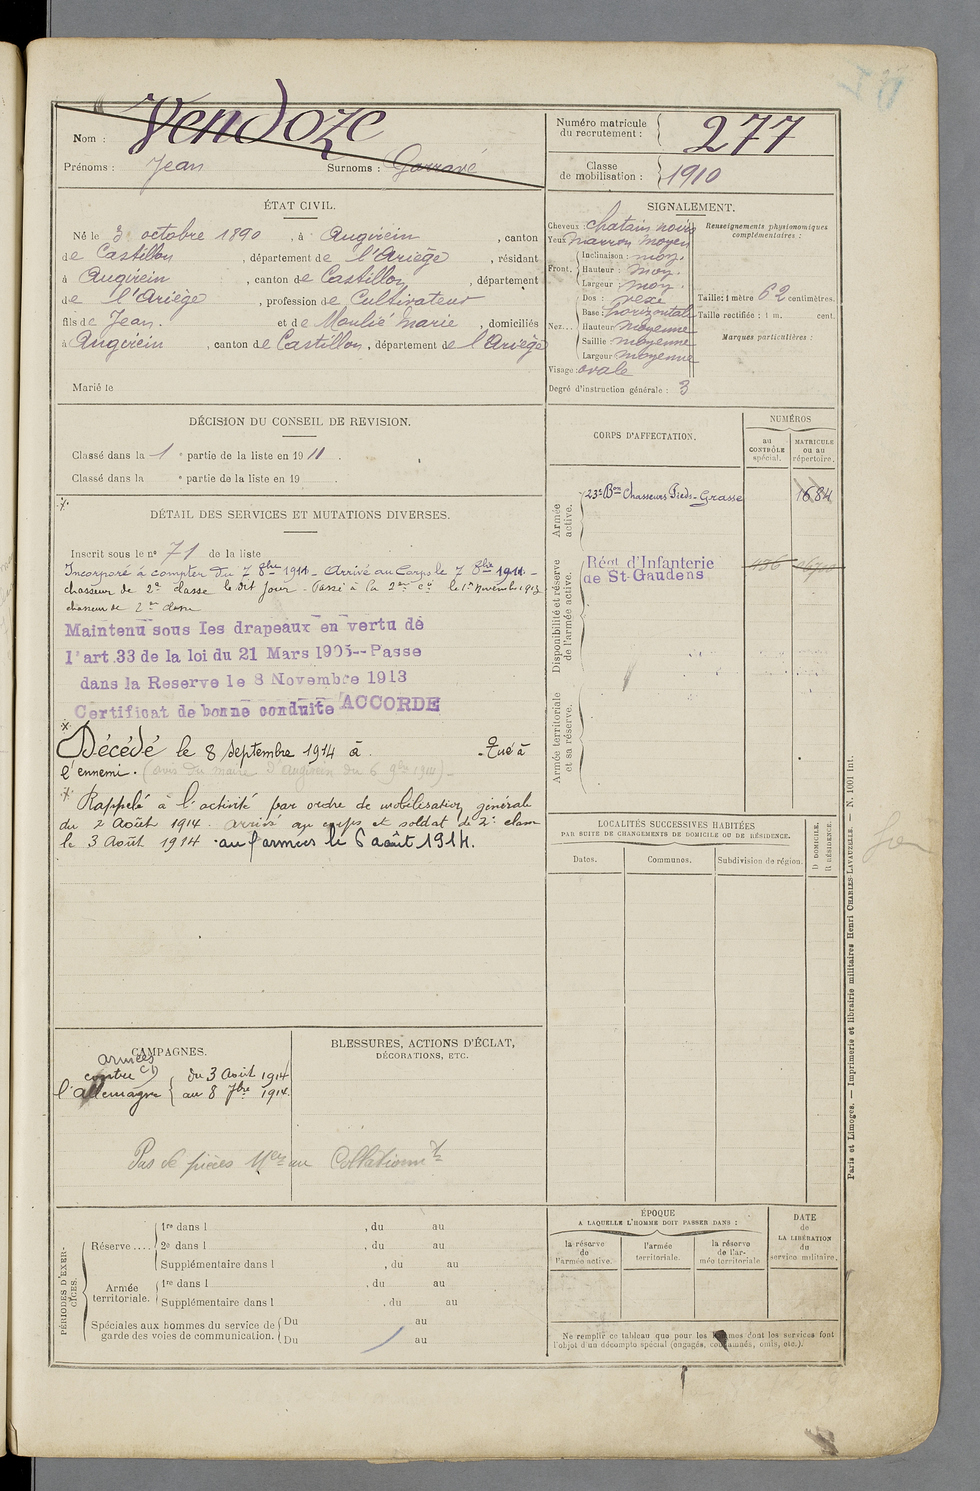 Nom : Vendoze
Prénoms : Jean Surnoms : Garravé
Numéro matricule du recrutement : 277
Classe de mobilisation : 1910
ÉTAT CIVIL.
Né le 3 octobre 1890, à Augirein, canton
de Castillon, département de l'Ariège, résidant
à Augirein, canton de Castillon, département
de l'Ariège, profession de Cultivateur
fils de Jean. et de Moulié Marie, domiciliés
à Augirein, canton de Castillon, département de l'Ariège
Marié le
SIGNALEMENT.
Cheveux : chatain noirs
Yeux marron moyen
Front. Inclinaison : moy.
Hauteur : moy.
Largeur : moy.
Nez... Dos : vexe
Base : horizontale
Hauteur moyenne
Saillie moyenne
Largeur moyenne
Visage : ovale
Degré d'instruction générale : 3
Renseignements physionomiques complémentaires :
Taille : 1 mètre 62 centimètres.
Taille rectifiée : 1 m. cent.
Marques particulières :
DÉCISION DU CONSEIL DE REVISION.
Classé dans la 1 e partie de la liste en 1911.
Classé dans la e partie de la liste en 19 .
DÉTAIL DES SERVICES ET MUTATIONS DIVERSES.
Inscrit sous le no 71 de la liste
Incorporé à compter du 7 8bre 1911 _ Arrivé au Corps le 7 8bre 1911. _
chasseur de 2e classe le dit jour - Passé à la 2me Cie le 1er Novembre 1913
chasseur de 2me classe
Maintenu sous les drapeaux en vertu de
l'art.33 de la loi du 21 Mars 1905--Passe
dans la Reserve le 8 Novembre 1913
Certificat de bonne conduite ACCORDE
Décédé le 8 Septembre 1914 à . - Tué à
l'ennemi. (avis du maire d'Augirein du 6 9bre 1914) _
Rappelé à l'activité par ordre de mobilisation générale
du 2 Août 1914. arrivé au corps et soldat de 2e classe
le 3 Août 1914 . aux armées le 6 août 1914.
CORPS D'AFFECTATION.
NUMÉROS
au CONTRÔLE spécial.
MATRICULE ou au répertoire.
Armée active.
23e Bon Chasseurs Pieds - Grasse 1684
Disponibilité et réserve de l'armée active.
Régt d'Infanterie
de St-Gaudens
Armée territoriale et sa réserve.
LOCALITÉS SUCCESSIVES HABITÉES
PAR SUITE DE CHANGEMENTS DE DOMICILE OU DE RÉSIDENCE.
Dates. Communes. Subdivision de région.
D DOMICILE.
R RÉSIDENCE.
CAMPAGNES.
armées
contre
l'Allemagne
du 3 Août 1914
au 8 7bre 1914.
BLESSURES, ACTIONS D'ÉCLAT,
DÉCORATIONS, ETC.
Pas de pièces
PÉRIODES D'EXERCICES.
Réserve....
1re dans l , du au
2e dans l , du au
Supplémentaire dans l , du au
Armée territoriale.
1re dans l , du au
Supplémentaire dans l , du au
Spéciales aux hommes du service de garde des voies de communication.
Du au
Du au
ÉPOQUE
A LAQUELLE L'HOMME DOIT PASSER DANS :
la réserve de l'armée active.
l'armée territoriale.
la réserve de l'armée territoriale
DATE de LA LIBÉRATION du service militaire.
Ne remplir ce tableau que pour les hommes dont les services font
l'objet d'un décompte spécial (engagés, condamnés, omis, etc.).
Paris et Limoges. — Imprimerie et librairie militaires Henri CHARLES-LAVAUZELLE. — N. 1001 Int.